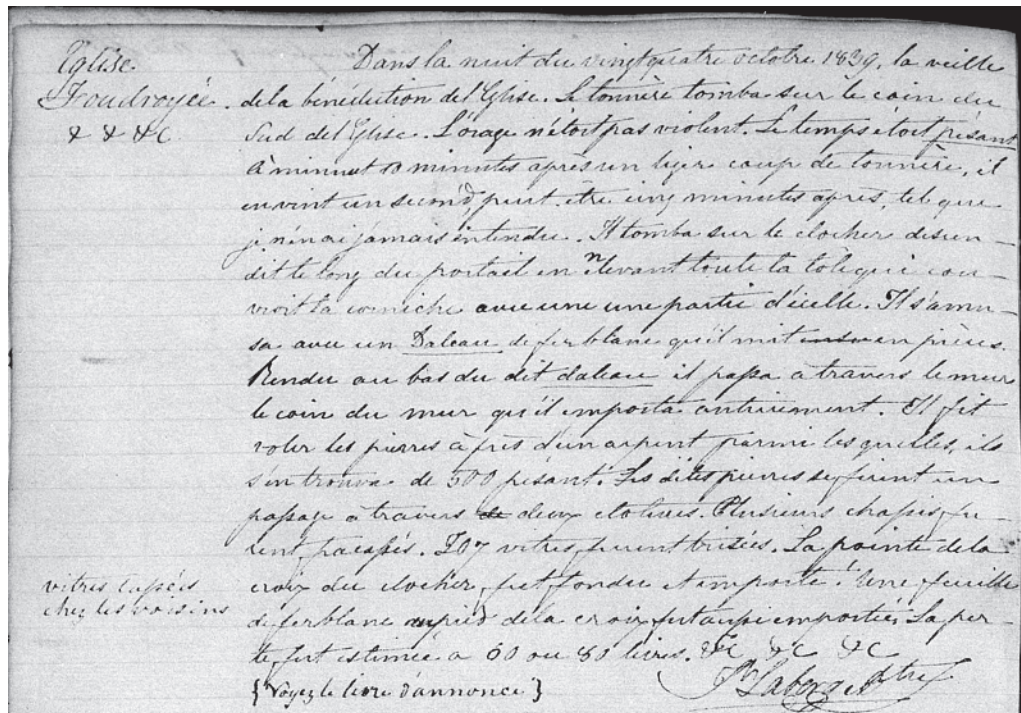 Eglise
Foudroyée.
& & &c
Dans la nuit du vingt quatre octobre 1839, la veille
de la bénédiction de l'Eglise. Le tonnère tomba sur le coin du
Sud de l'Eglise. L'orage n'étoit pas violent. Le temps étoit pésant
à minuit 10 minutes après un liger coup de tonnère, il
en vint un second, peut-être cinq minutes après, tel que
je n'en ai jamais entendu. Il tomba sur le clocher descen-
dit le long du portail en nlevant toute la tole qui cou-
vroit la corniche avec une une partie d'icelle. Il s'amu-
sa avec un Daleau de fer blanc qu'il mit en pièces.
Rendu au bas du dit daleau il passa à travers le mur
le coin du mur qu'il emporta entierement. Il fit
voler les pierres à près d'un arpent parmi lesquelles, ils
s'en trouva de 500 pésant. Les dites pierres se firent un
passage à travers de deux clotures. Plusieurs chassis fu-
rent cassés. 207 vitres furent brisées. La pointe de la
vitres cassées
chez les voisins
croix du clocher fut fondu et emporté! Une feuille
de fer blanc au pied de la croix fut aussi emportée. La per-
te fut estimée a 60 ou 80 livres. &c &c &c
{Voyez le livre d'annonce}
Laberge Ptre